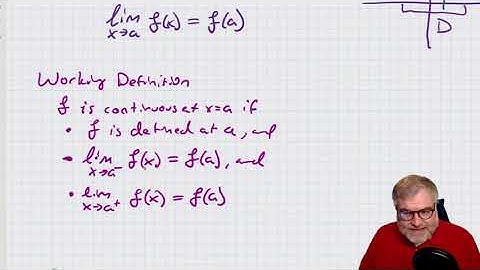 lim f(x) = f(a)
x→a
D
Working Definition
f is continuous at x=a if
• f is defined at a, and
• lim f(x) = f(a), and
x→a⁻
• lim f(x) = f(a)
x→a⁺